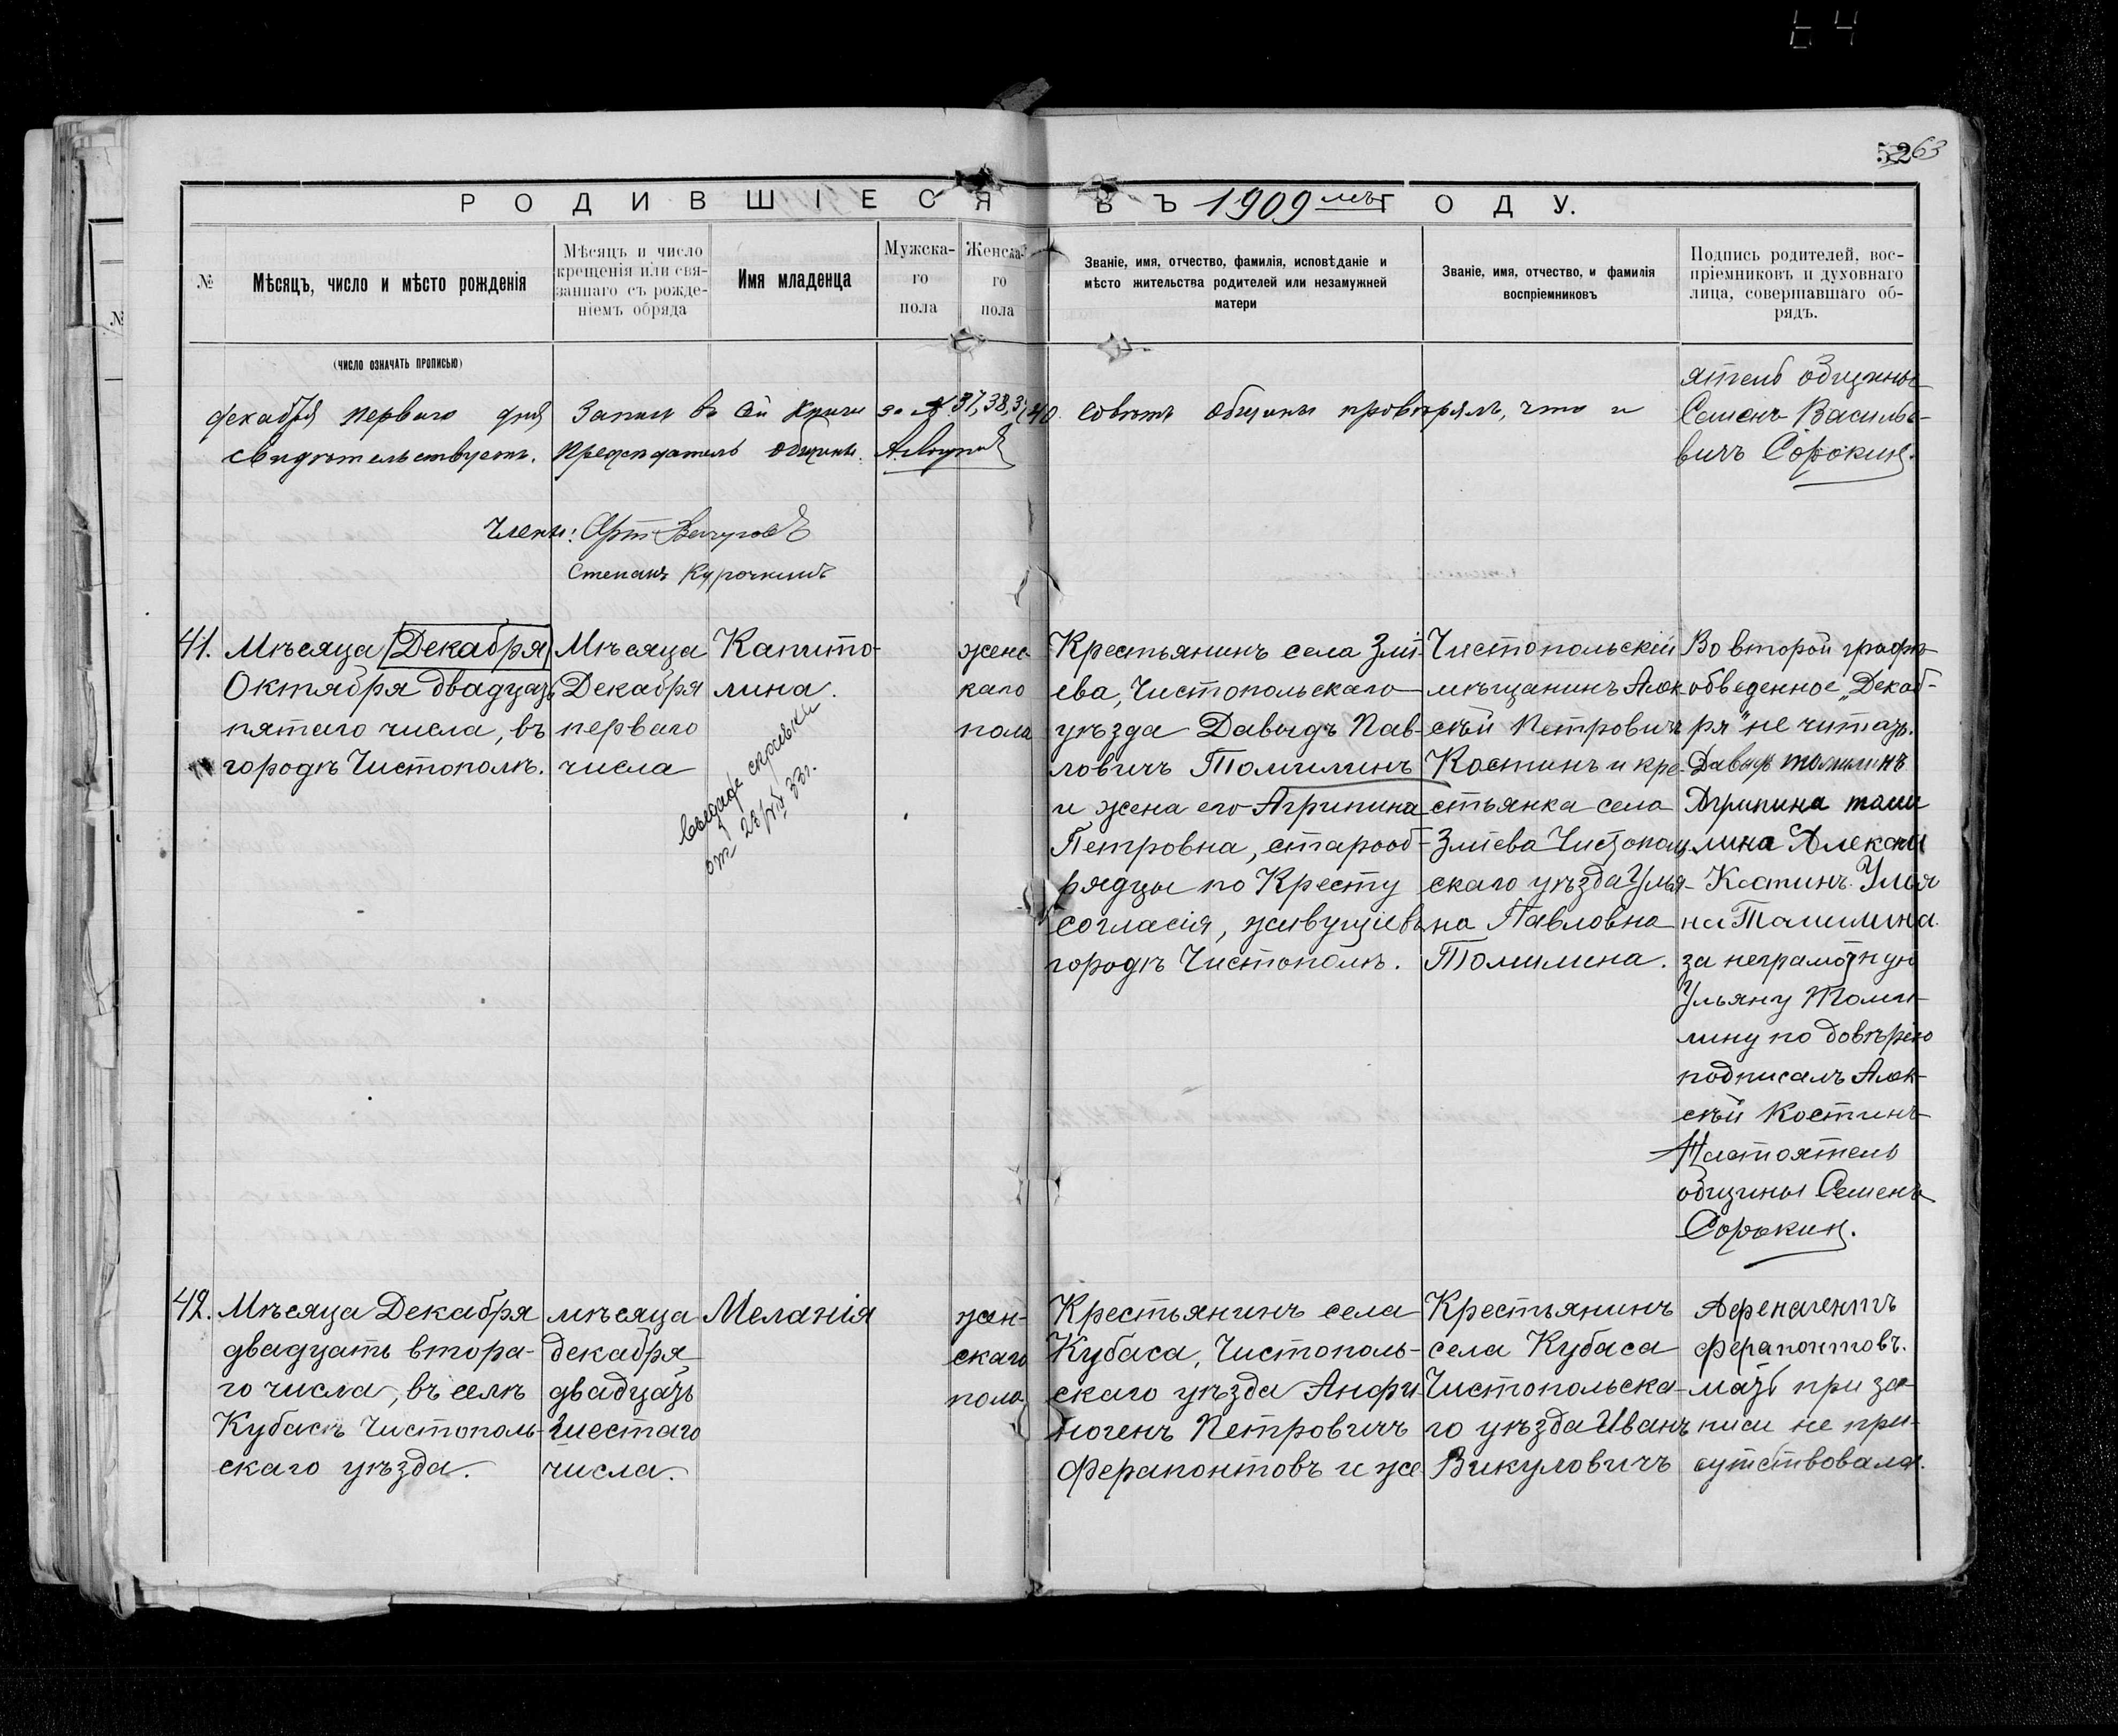 52 63
РОДИВШІЕСЯ ВЪ 1909 мъ ГОДУ.
№
Мѣсяцъ, число и мѣсто рожденія
Мѣсяцъ и число
крещенія или свя-
заннаго съ рожде-
ніемъ обряда
Имя младенца
Мужска-
го
пола
Женска-
го
пола
Званіе, имя, отчество, фамилія, исповѣданіе и
мѣсто жительства родителей или незамужней
матери
Званіе, имя, отчество, и фамилія
воспріемниковъ
Подпись родителей, вос-
пріемниковъ и духовнаго
лица, совершавшаго об-
рядъ.
(ЧИСЛО ОЗНАЧАТЬ ПРОПИСЬЮ)
декабря перваго дня записи въ сей книги за № 37, 38, 39, 40. Совѣтъ общины провѣрялъ, что и
свидѣтельствуетъ. Предсѣдатель общины
Члены:
Степанъ Курочкинъ
ятель общины
Семенъ Василье-
вичъ Сорокинъ.
41.
Мѣсяца Декабря
Октября двадцать
пятаго числа, въ
городѣ Чистополѣ.
Мѣсяца
Декабря
перваго
числа
Капито-
лина.
выдана справка
от 28/XII 33 г.
женс-
каго
пола
Крестьянинъ села Змі-
ева, Чистопольскаго
уѣзда Давыдъ Пав-
ловичъ Томилинъ
и жена его Агрипина
Петровна, старооб-
рядцы по Кресту
согласія, живущіе въ
городѣ Чистополѣ.
Чистопольскій
мѣщанинъ Алек-
сѣй Петровичъ
Костинъ и кре-
стьянка села
Зміева Чистополь-
скаго уѣзда Улья-
на Павловна
Томилина.
Во второй графѣ
обведенное „Декаб-
ря" не читать.
Давыдъ томилинъ
Агрипина томи
лина Алексѣй
Костинъ. Улья
на Томилина.
за неграмотную
Ульяну Томи-
лину по довѣрію
подписалъ Алек-
сѣй Костинъ
Настоятель
общины Семенъ
Сорокинъ.
42.
Мѣсяца Декабря
двадцать втора-
го числа, въ селѣ
Кубасѣ Чистополь-
скаго уѣзда.
мѣсяца
декабря
двадцать
шестаго
числа.
Меланія
жен-
скаго
пола
Крестьянинъ села
Кубаса, Чистополь-
скаго уѣзда Анфи
ногенъ Петровичъ
Ферапонтовъ и же
Крестьянинъ
села Кубаса
Чистопольска-
го уѣзда Иванъ
Викуловичъ
Ферапонтовъ.
мать при за-
писи не при-
сутствовала.